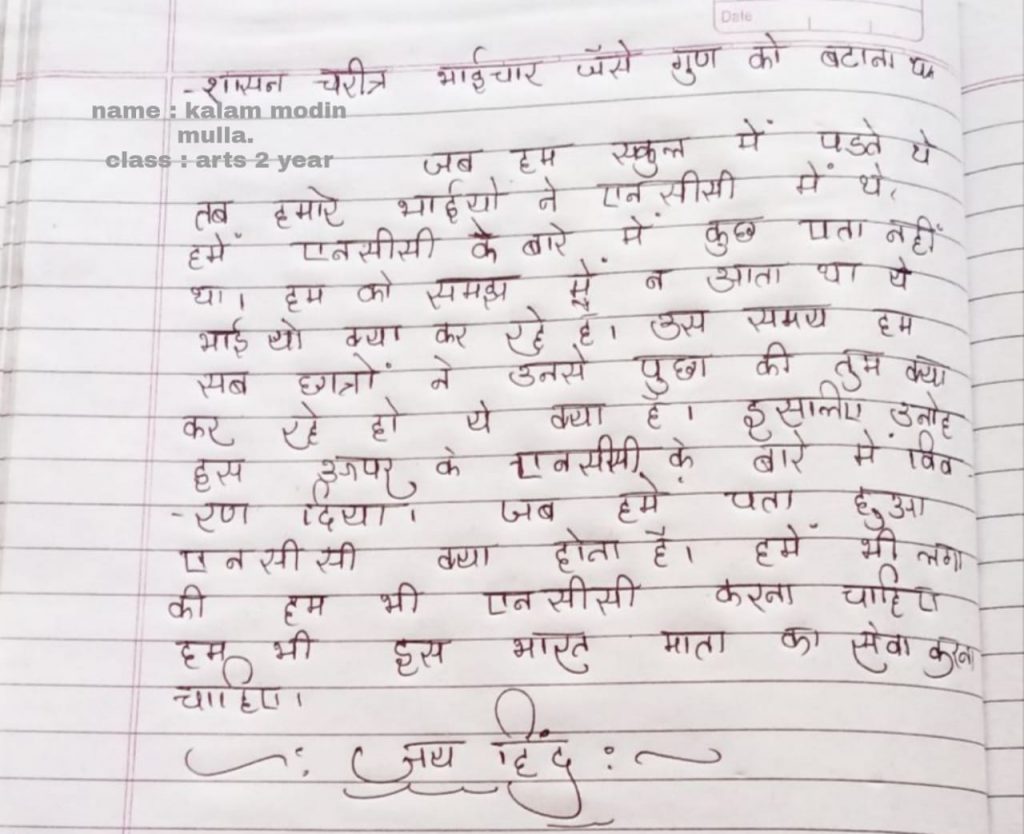 Date
-शासन चरीत्र भाईचार जॅसे गुण को बटाना था
name : kalam modin
mulla.
class : arts 2 year
जब हम स्कुल में पडते थे
तब हमारे भाईयो ने एनसीसी में थे,
हमें एनसीसी के बारे में कुछ पता नहीं
था। हम को समझ में न आता था ये
भाई यो क्या कर रहे है। उस समय हम
सब छात्रों ने उनसे पुछा की तुम क्या
कर रहे हो ये क्या है। इसालीए उनोह
इस ऊपर के एनसीसी के बारे में विव
-रण दिया। जब हमें पता हुआ
एनसीसी क्या होता है। हमें भी लगा
की हम भी एनसीसी करना चाहिए
हम भी इस भारत माता का सेवा करना
चाहिए।
जय हिंद